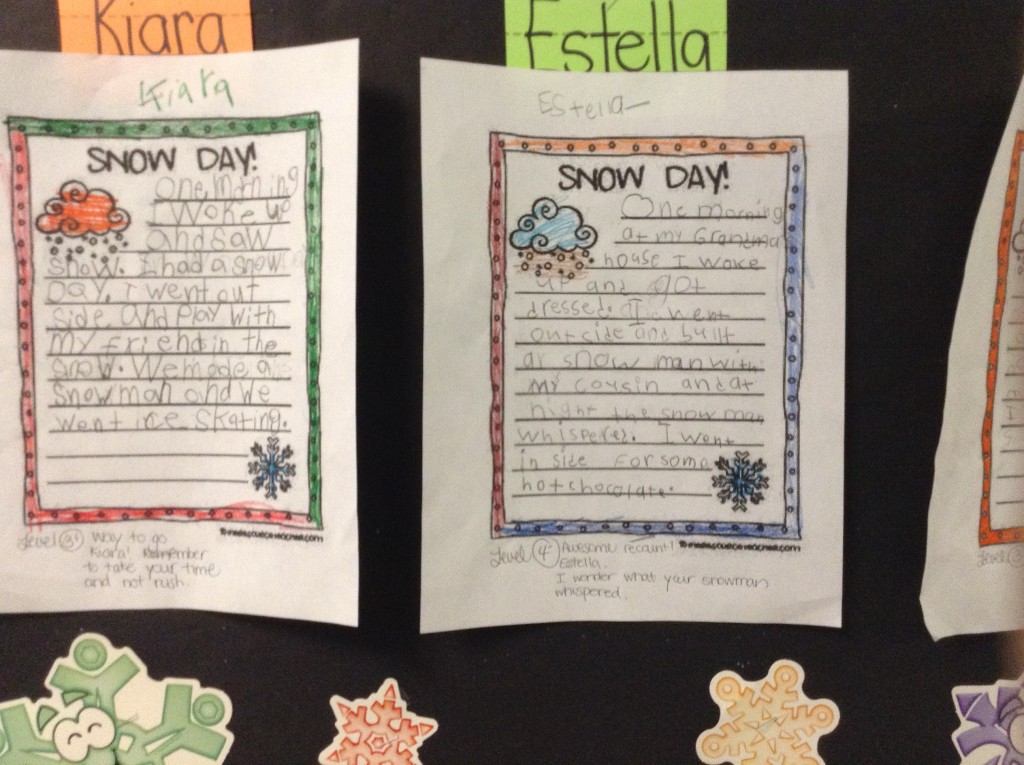 Kiara
Kiara
SNOW DAY!
One morning
I woke up
and saw
snow. I had a snow
Day. I went out
side and play with
my friend in the
snow. We made a
snow man and we
went ice skating.
Level 3+ Way to go
Kiara! Remember
to take your time
and not rush.
Estella
Estella
SNOW DAY!
One morning
at my Grandma
house I woke
up and got
dressed. I went
out side and built
a snow man with
my cousin and at
night the snow man
whispered. I went
in side for some
hot chocolate.
Level 4 Awesome recount!
Estella.
I wonder what your snowman
whispered.
Level